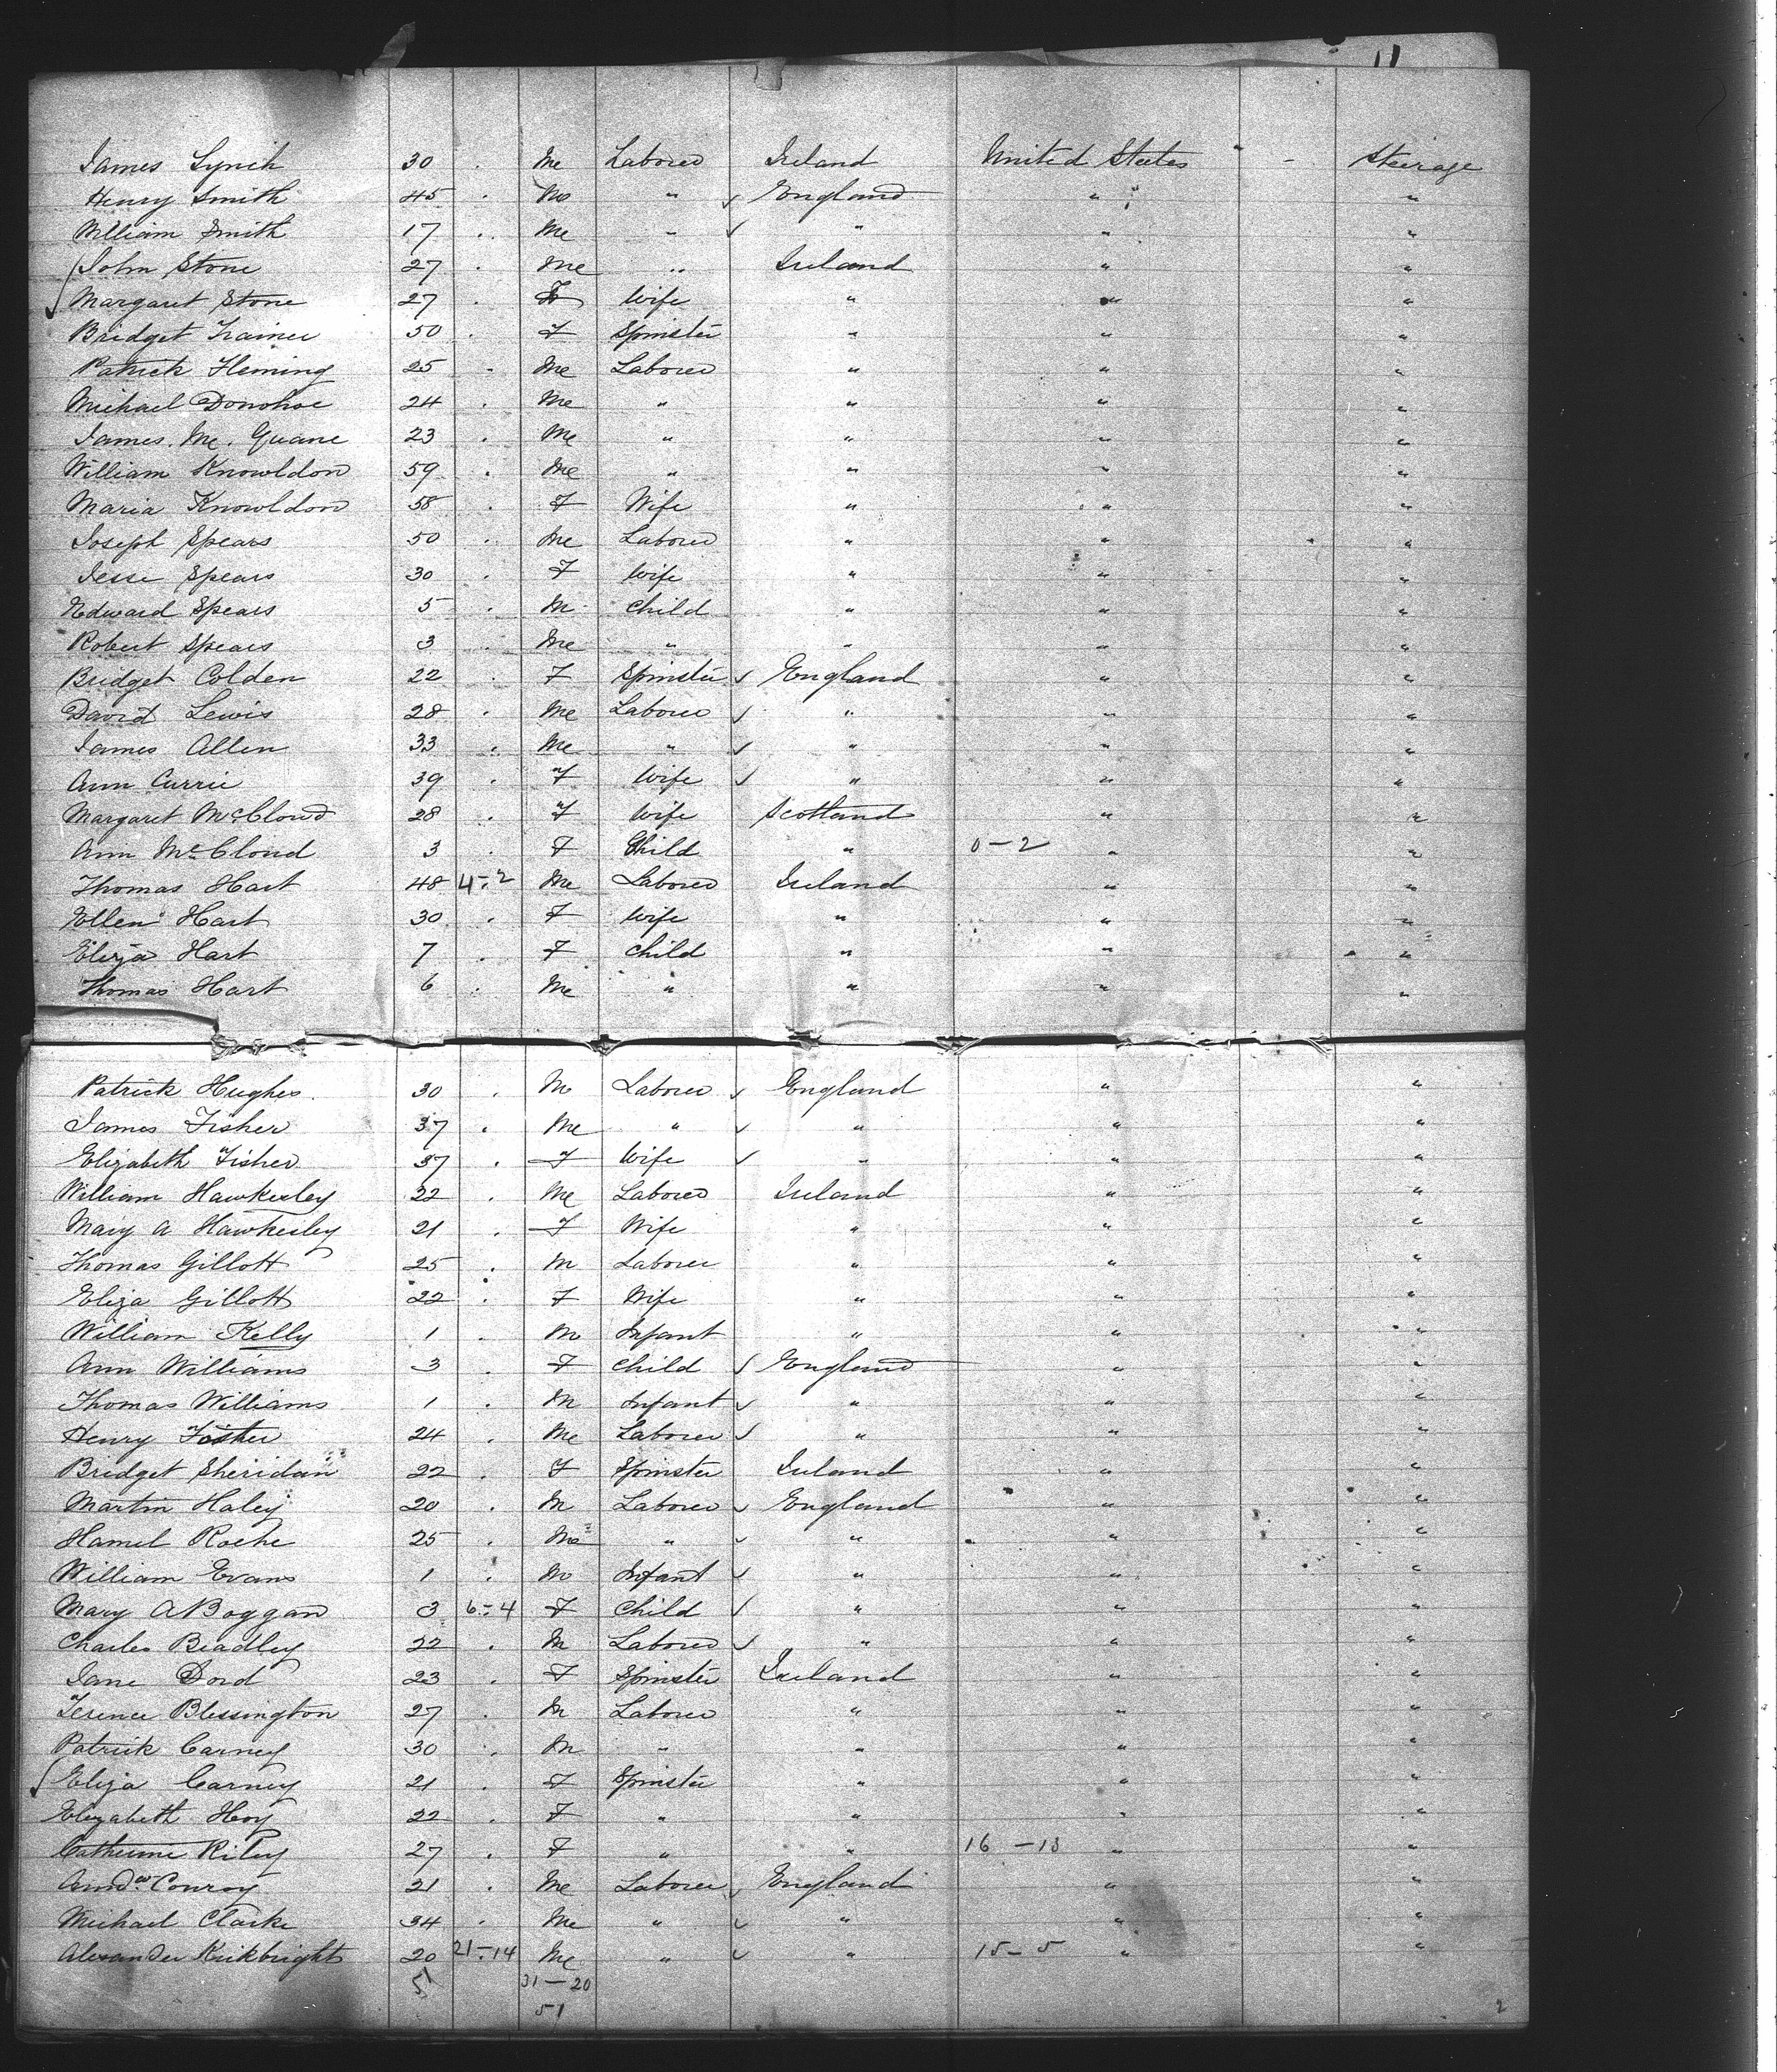 11
James Lynch 30 . M Laborer Ireland United States " - Steerage
Henry Smith 45 . M " ✓ England " "
William Smith 17 . M " ✓ " " "
John Stone 27 . M " Ireland " "
Margaret Stone 27 . F Wife " " "
Bridget Trainer 50 . F Spinster " " "
Patrick Fleming 25 . M Laborer " " "
Michael Donohoe 24 . M " " " "
James Mc. Guane 23 . M " " " "
William Knowldon 59 . M " " " "
Maria Knowldon 58 . F Wife " " "
Joseph Spears 50 . M Laborer " " "
Jesse Spears 30 . F Wife " " "
Edward Spears 5 . M Child " " "
Robert Spears 3 . M " " " "
Bridget Colden 22 . F Spinster ✓ England " "
David Lewis 28 . M Laborer ✓ " " "
James Allen 33 . M " ✓ " " "
Ann Currie 39 . F Wife ✓ " " "
Margaret McCloud 28 . F Wife Scotland " "
Ann McCloud 3 . F Child " 0-2 " "
Thomas Hart 48 4-2 M Laborer Ireland " "
Ellen Hart 30 . F Wife " " "
Eliza Hart 7 . F Child " " "
Thomas Hart 6 . M " " " "
Patrick Hughes 30 . M Laborer ✓ England " "
James Fisher 37 . M " ✓ " " "
Elizabeth Fisher 37 . F Wife ✓ " " "
William Hawkesley 22 . M Laborer Ireland " "
Mary A Hawkesley 21 . F Wife " " "
Thomas Gillott 25 . M Laborer " " "
Eliza Gillott 22 . F Wife " " "
William Kelly 1 . M Infant " " "
Ann Williams 3 . F Child ✓ England " "
Thomas Williams 1 . M Infant ✓ " " "
Henry Foster 24 . M Laborer ✓ " " "
Bridget Sheridan 22 . F Spinster Ireland " "
Martin Haley 20 . M Laborer ✓ England " "
Hamel Roche 25 . M " ✓ " " "
William Evans 1 . M Infant ✓ " " "
Mary A Boggan 3 6-4 F Child ✓ " " "
Charles Bradley 22 . M Laborer ✓ " " "
Jane Dord 23 . F Spinster Ireland " "
Terence Blessington 27 . M Laborer " " "
Patrick Carney 30 . M " " " "
Eliza Carney 21 . F Spinster " " "
Elizabeth Hoy 22 . F " " " "
Catherine Riley 27 . F " " 16-13 " "
Andw Conroy 21 . M Laborer ✓ England " "
Michael Clarke 34 . M " ✓ " " "
Alexander Kirkbright 20 21-14 M " ✓ " 15-5 " "
51 31-20
51
2